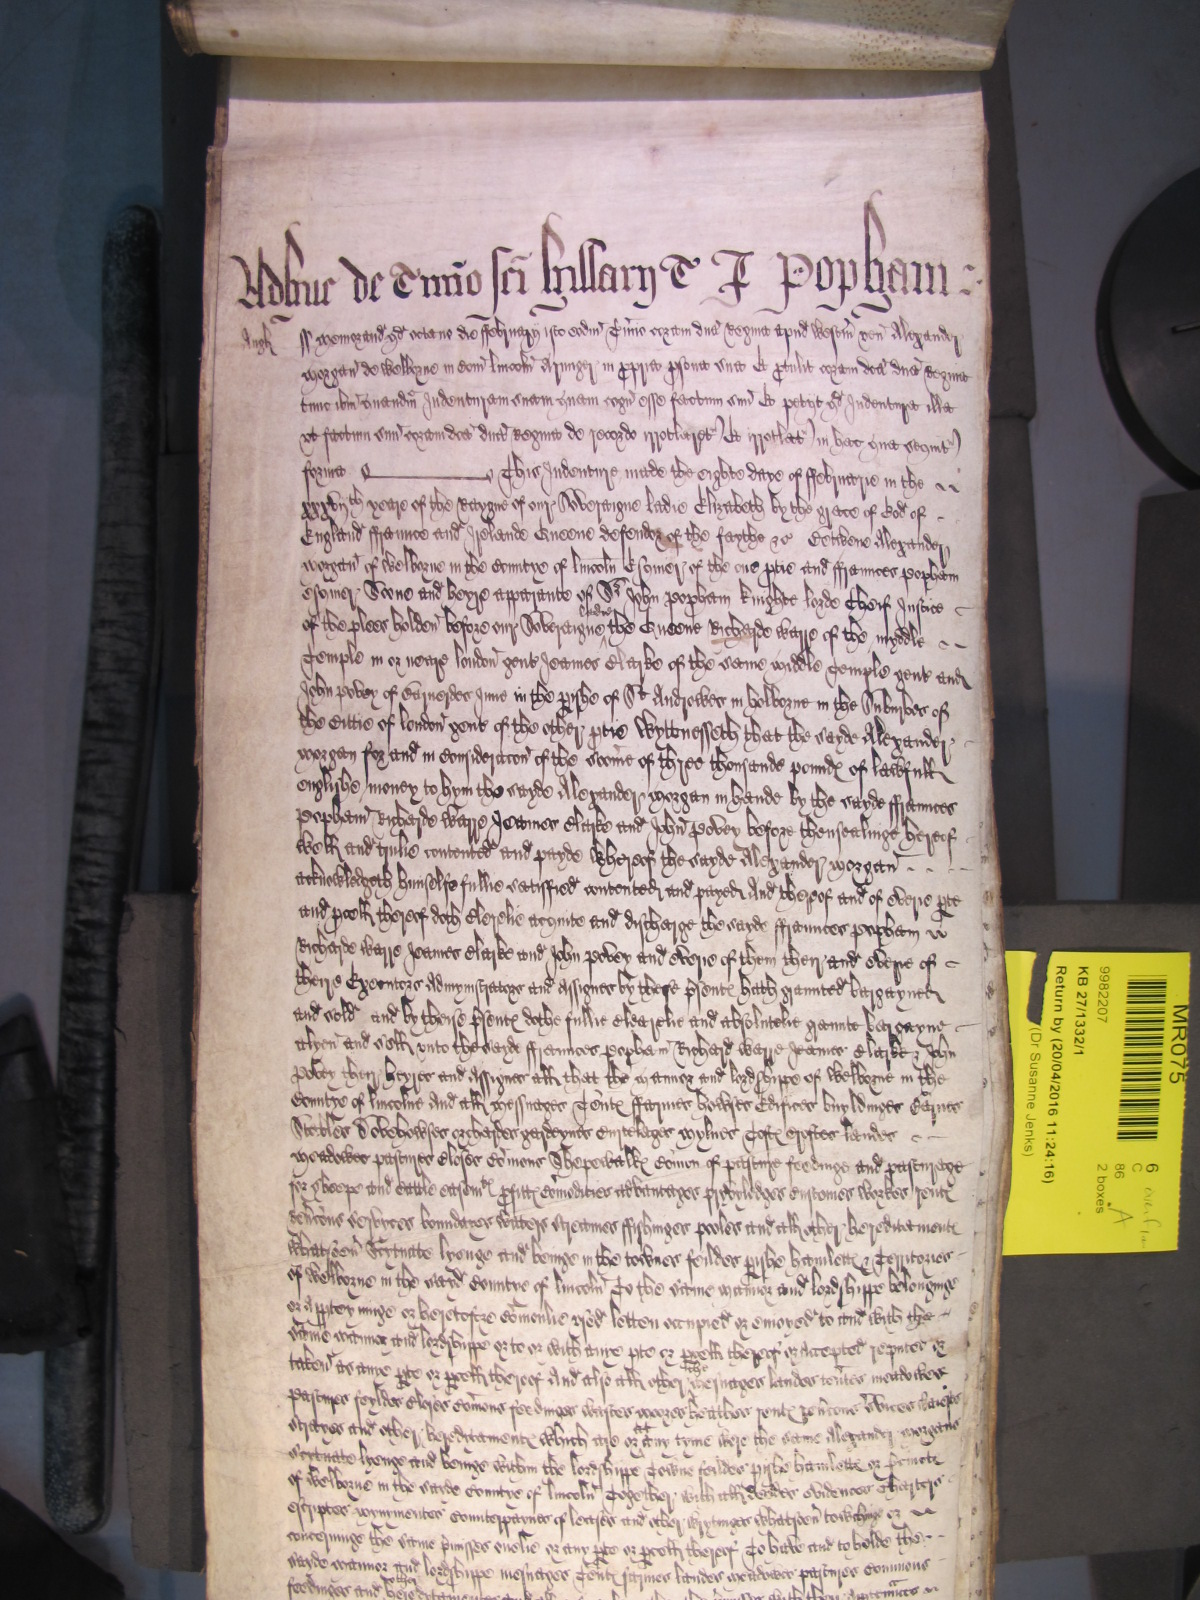 Adhuc de Termino sci Hillary T J Popham
Angl
ss Memorand qd octavo die Februarij isto eodm Tmino coram dna Regina apud Westm ven Alexander
Morgan de Welborne in Com Lincoln Armiger in ppria psona sua Et ptulit coram dca dna Regina
tunc ibm quandm Indenturam suam quam cogn esse factum suu Et petijt qd Indentura illa
ut factum suu coram dca dna Regina de recordo irrotlaret Et irrotlat in hec que sequnt
forma This Indenture made the eighte daye of Februarie in the
yeare of the Raygne of our Soveraigne ladie Elizabeth by the grace of God of
England Fraunce and Irelande Queene defendor of the faythe &c Betwene Alexander
Morgan of Welborne in the Countye of Lincoln Esquier of the one ptie and Fraunces Popham
esquier Sonne and heyre apparante of Sr John Popham knighte lorde Cheif Justice
of the plees holden before our Soveraigne ladie the Queene Richarde Warre of the myddle
Temple in or neare london gent Jeames Clarke of the same middle Temple gent and
John Povey of Barnerdes Inne in the pishe of St Andrewes in holborne in the Suburbes of
the Cittie of london gent of the other ptie Wyttnesseth that the sayde Alexander
Morgan for and in Consideracon of the some of three thousande pounds of lawfull
englishe money to hym the sayde Alexander Morgan in hande by the sayde Fraunces
Popham Richarde Warre Jeames Clarke and John Povey before thensealinge hereof
well and trulie contented and payde Whereof the sayde Alexander Morgan
acknowledgeth himselfe fullie satisfied contented and payed And thereof and of everie pte
and pcell thereof doth Clerelie acquite and discharge the sayde Fraunces Popham
Richarde Warre Jeames Clarke and John Povey and everie of them their and everie of
theire Executors Admynistrators and Assignes by these psents hath graunted bargayned
and sold and by these psents dothe fullie Clearelie and absolutelie graunte bargayne
alyen and sell unto the sayde Fraunces Popham Richard Warre Jeames Clarke & John
Povey their heyres and Assignes all that the mannor and lordshippe of Welborne in the
Countye of Lincolne And all messuages Tents Farmes howses Edifices buyldinges Barnes
Stables Dovehowses orchardes gardeynes Curtelages mylnes Tofts croftes landes
meadowes pastures Closes Comons Shepewalks Comon of pasture feedinges and pasturage
for Sheepe and Cattle easemts pfitts Comodities advantages pryviledges Customes workes rents
revcons servyces boundaries waters streames Fishinges pooles and all other hereditaments
whatsoev Scytuate lyenge and beinge in the townes feildes pishe hamletts & Territories
of Welborne in the sayd Countye of Lincoln To the same mannor and lordshippe belonginge
or Appteyninge or heretofore Comonlie used letten occupied or enioyed to and with the
same mannor and lordshippe or to or with anye pte or pcell thereof or accepted reputed or
taken as anye pte or pcell thereof And also all other the messuages landes tents meadowes
pastures feyldes Closes Comons feedinges wastes moores heathes rents revcons Svices
and other hereditaments which are or at any tyme were the same Alexander Morgans
scytuate lyenge and beinge within the lordshippe Towne feildes pishe hamletts or
of Welborne in the sayde Countye of Lincoln Together with all deedes evidences Charters
escriptes mynymentes Counterpaynes of leases and other wrytinges whatsoev towchinge or
concerninge the same pmisses onelie or any pte or pcell thereof To have and to holde the
sayde mannor and lordshippe messuages Tents farmes landes meadowes pastures Commons
feedinges and hereditamentes
MR075
9982207
KB 27/1332/1
Return by (20/04/2016 11:24:16)
(Dr Susanne Jenks)
6
C
86
2 boxes
A